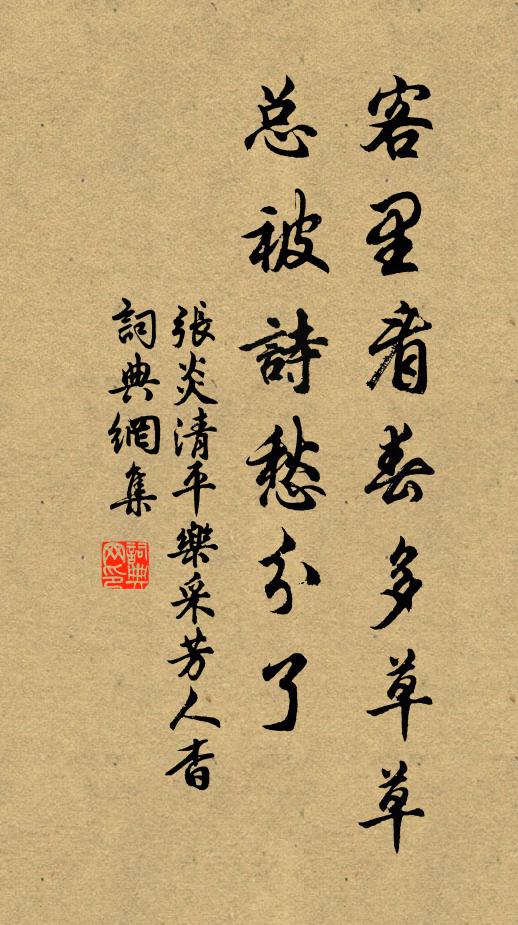 客里看春多草草
总被詩愁分了
張炎清平樂采芳人杳
詞典網集
詞典网印